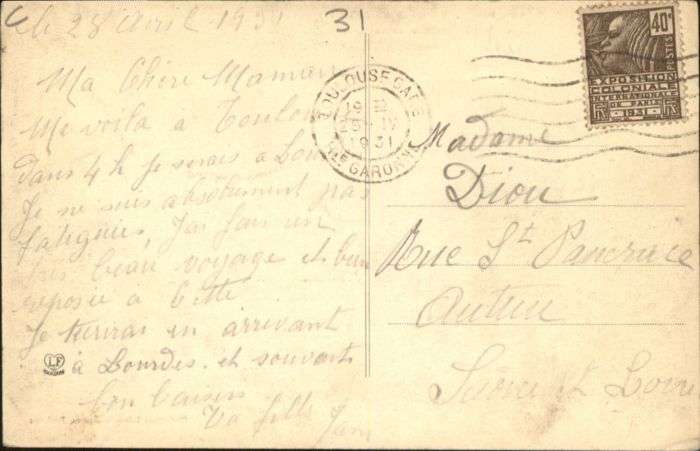 le 28 Avril 1931
31
Ma Chère Maman
Me voilà à Toulouse
dans 4 h je serais à Lourdes
Je ne suis absolument pas
fatiguée, j'ai fais un
très beau voyage et bien
reposée à Cette
Je t'écrirai en arrivant
à Lourdes. et souvent
bon baisers
Ta fille
TOULOUSE GARE
19
1931
HTE GARONNE
40c
POSTES
EXPOSITION
COLONIALE
INTERNATIONALE
DE PARIS
1931
Madame
Diou
Rue St Pancrace
Autun
Saone et Loire
LF